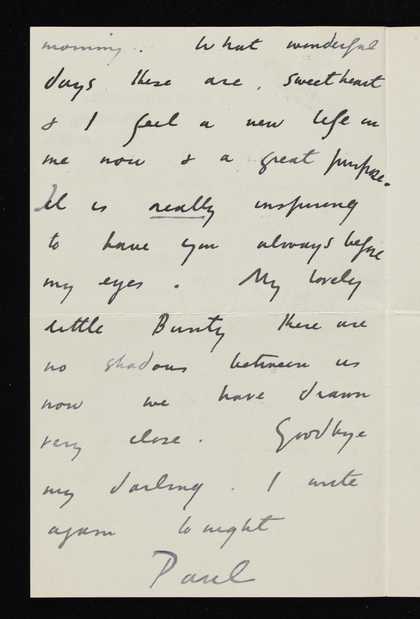 morning. What wonderful
days these are, sweetheart
& I feel a new life in
me now & a great purpose.
It is really inspiring
to have you always before
my eyes. My lovely
little Bunty there are
no shadows between us
now we have drawn
very close. Goodbye
my darling. I write
again tonight
Paul